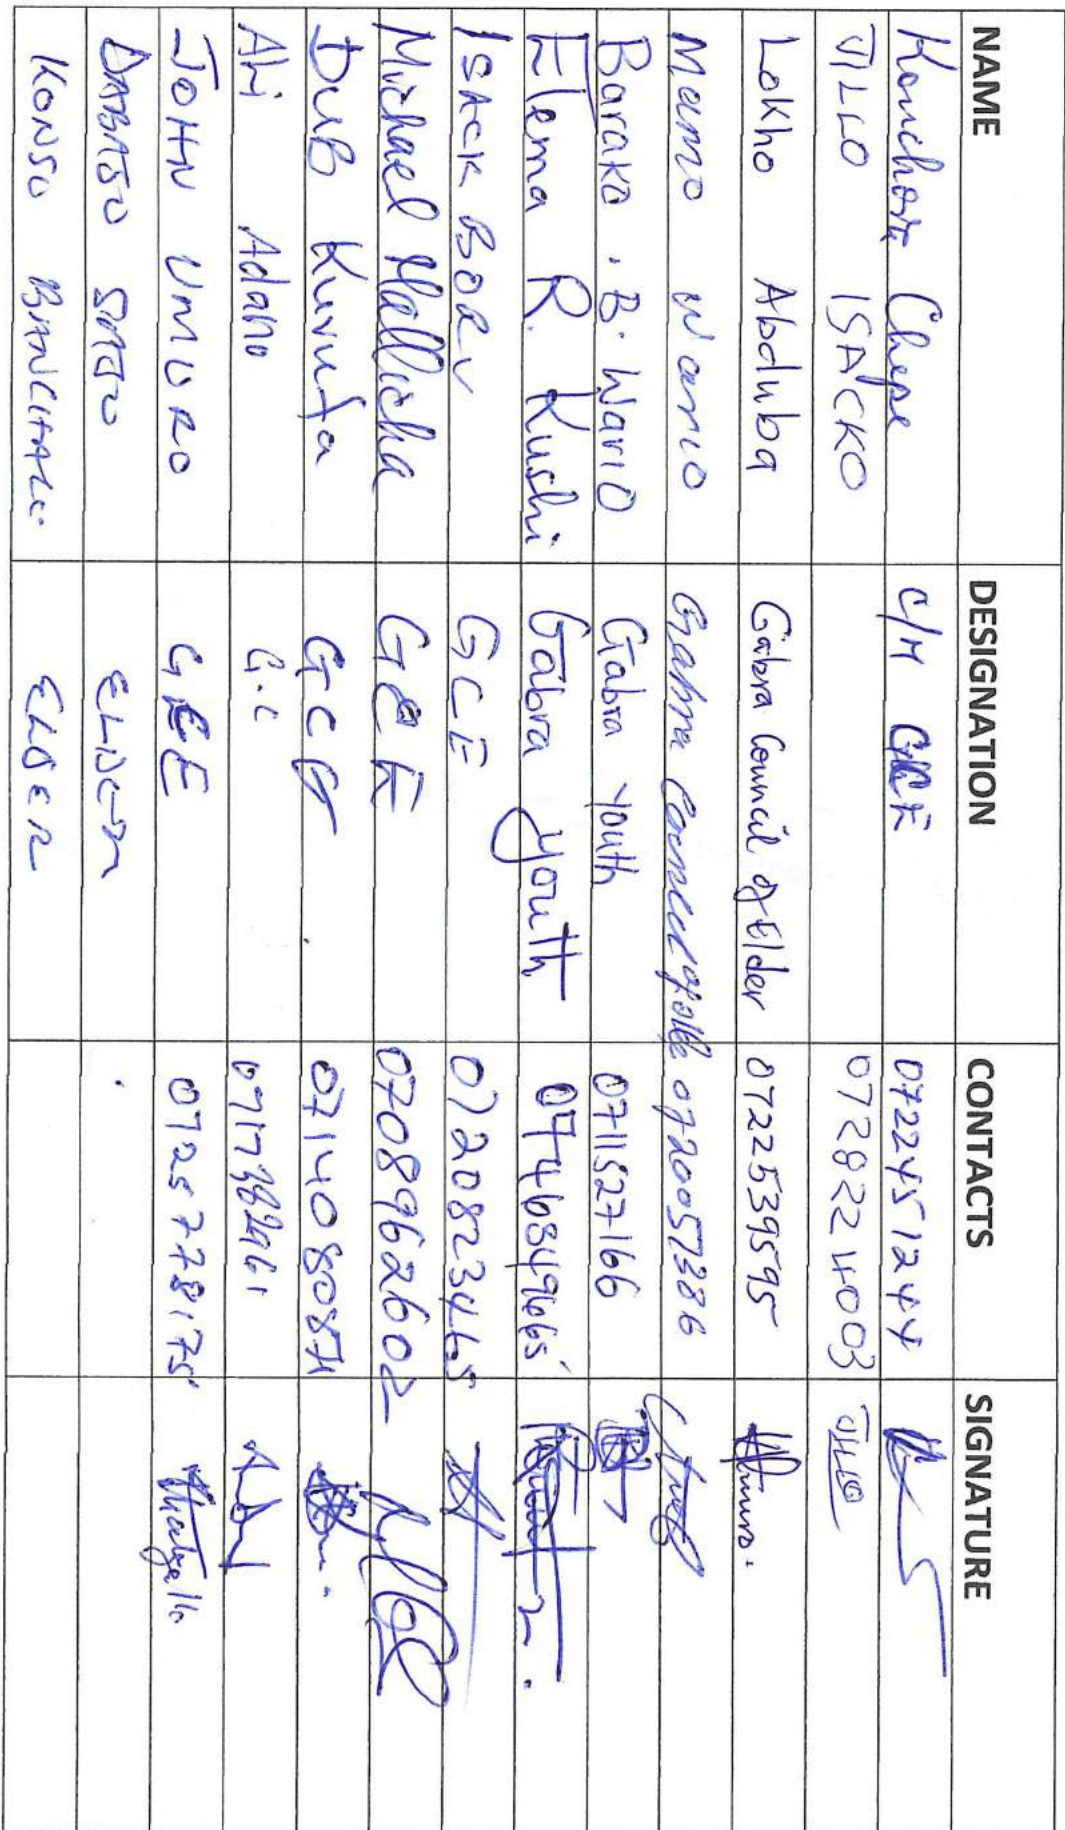 NAME DESIGNATION CONTACTS SIGNATURE
Konchora Chepe C/M GCE 0722451244
JILLO ISACKO 0728224003 Jillo
Lokho Abduba Gabra Council of Elder 0722539595
Mamo Wario Gabra Council of elde 0720057386
Barako . B. Wario Gabra youth 0711527166
Elema R. Kushi Gabra youth 0746349665
ISACK BORU GCE 0720823465
Michael Hallicha GCE 0708962602
DUB Kurufa GCE 0714080871
Ali Adano G.C
JOHN UMURO GCE 0725778175
DABASO ELDER
KONSO ELDER